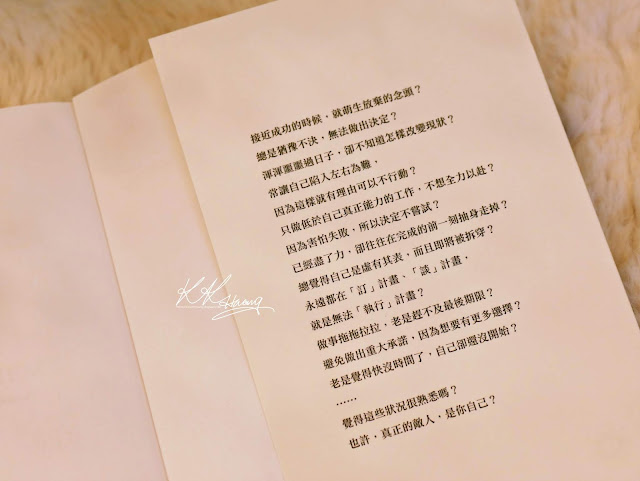 接近成功的時候，就萌生放棄的念頭？
總是猶豫不決，無法做出決定？
渾渾噩噩過日子，卻不知道怎樣改變現狀？
常讓自己陷入左右為難，
因為這樣就有理由可以不行動？
只做低於自己真正能力的工作，不想全力以赴？
因為害怕失敗，所以決定不嘗試？
已經盡了力，卻往往在完成的前一刻抽身走掉？
總覺得自己是虛有其表，而且即將被拆穿？
永遠都在「訂」計畫、「談」計畫，
就是無法「執行」計畫？
做事拖拖拉拉，老是趕不及最後期限？
避免做出重大承諾，因為想要有更多選擇？
老是覺得快沒時間了，自己卻還沒開始？
……
覺得這些狀況很熟悉嗎？
也許，真正的敵人，是你自己？
KK Huang